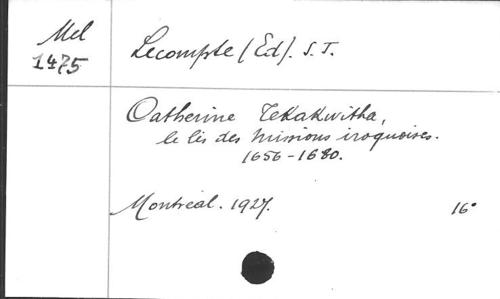 Mel
1475
Lecompte (Ed). S.J.
Catherine Tekakwitha,
le lis des missions iroquoises.
1656-1680.
Montréal. 1927.
16°